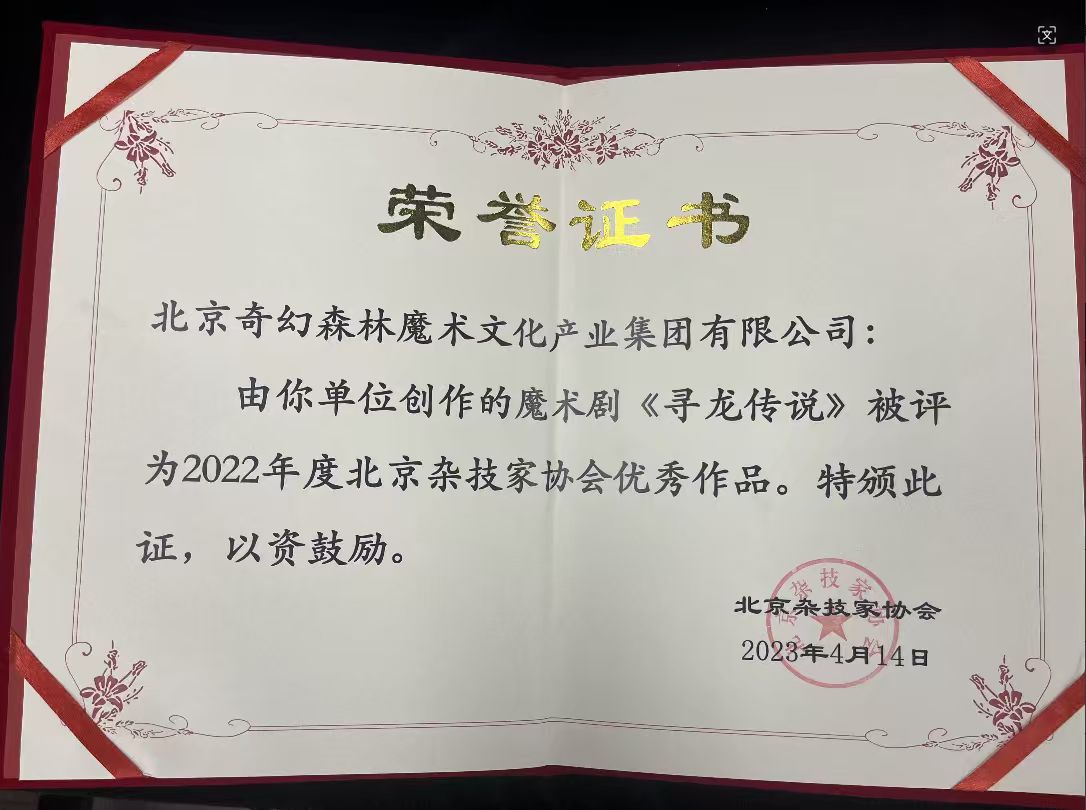 荣誉证书
北京奇幻森林魔术文化产业集团有限公司：
由你单位创作的魔术剧《寻龙传说》被评
为2022年度北京杂技家协会优秀作品。特颁此
证，以资鼓励。
北京杂技家协会
2023年4月14日
北京杂技家协会